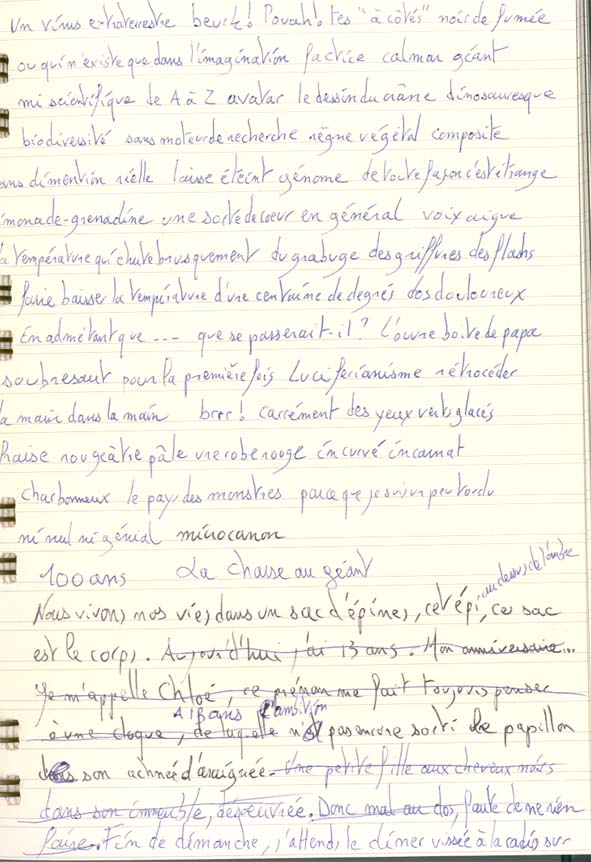 Un virus extraterrestre beurk! Pouah! tes "à côtés" noir de fumée
ou qui n'existe que dans l'imagination factice calmar géant
mi scientifique de A à Z avatar le dessin du crâne dinosauresque
biodiversité sans moteur de recherche règne végétal composite
ans dimention réelle laisse éteint génome de toute façon c'est étrange
imonade-grenadine une sorte de coeur en général voix aigue
a température qui chute brusquement du grabuge des griffures des flashs
faire baisser la température d'une centaine de degrés dos douloureux
En admétant que --- que se passerait-il? L'ouvre boite de papa
soubresaut pour la première fois Luciferianisme rétrocéder
la main dans la main brrr! carrément des yeux verts glacés
fraise rougeâtre pâle une robe rouge incurvé incarnat
charbonneux le pays des monstres parce que je suis un peu tordu
ni nul ni génial microcanon
100 ans La chasse au géant
au dessus de l'ombre
Nous vivons nos vies dans un sac d'épines, cet épi, ce sac
est le corps. Aujourd'hui j'ai 13 ans. Mon anniversaire...
Je m'appelle Chloé, ce prénom me fait toujours penser
A 13 ans l'ambition
à une cloque, de laquelle n' pas encore sorti le papillon
son achnée d'araignée. Une petite fille aux cheveux noirs
dans son immeuble, désoeuvrée. Donc mal au dos, faute de ne rien
faire. Fin de dimanche, j'attends le dîner vissée à la radio sur